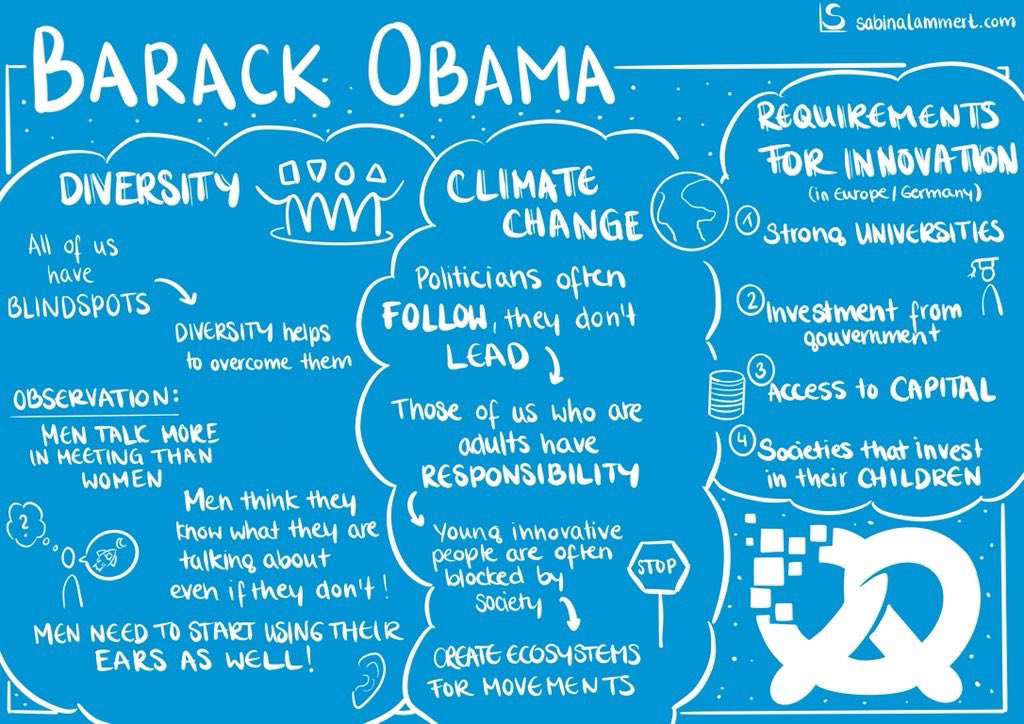 LS sabinalammert.com
BARACK OBAMA
DIVERSITY
All of us
have
BLINDSPOTS
DIVERSITY helps
to overcome them
OBSERVATION:
MEN TALK MORE
IN MEETING THAN
WOMEN
?
Men think they
know what they are
talking about
even if they don't!
MEN NEED TO START USING THEIR
EARS AS WELL!
CLIMATE
CHANGE
Politicians often
FOLLOW, they don't
LEAD
Those of us who are
adults have
RESPONSIBILITY
Young innovative
people are often
blocked by
society
STOP
CREATE ECOSYSTEMS
FOR MOVEMENTS
REQUIREMENTS
FOR INNOVATION
(in Europe/Germany)
1 Strong UNIVERSITIES
2 Investment from
gouvernment
3 Access to CAPITAL
4 Societies that invest
in their CHILDREN